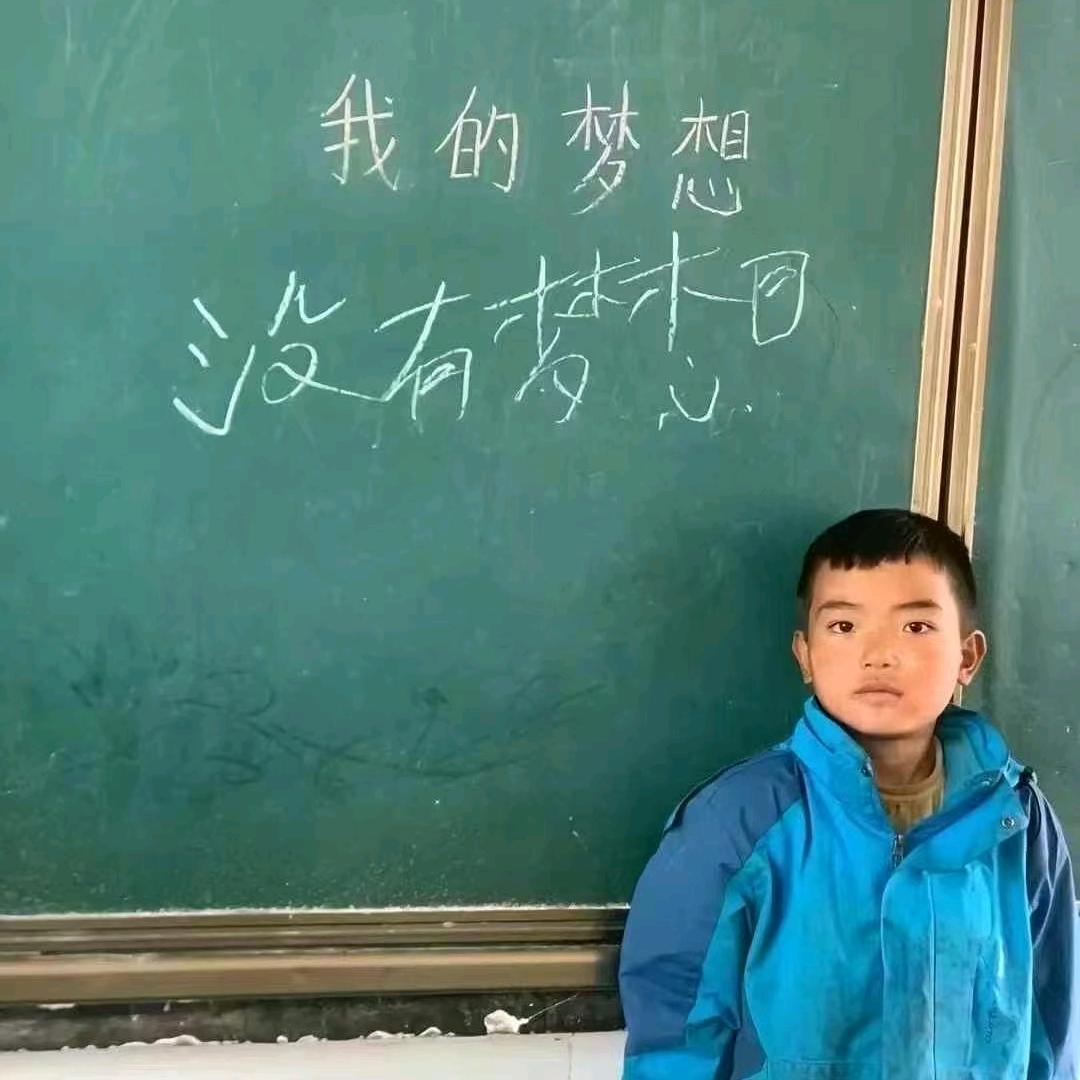 我的梦想
没有梦想